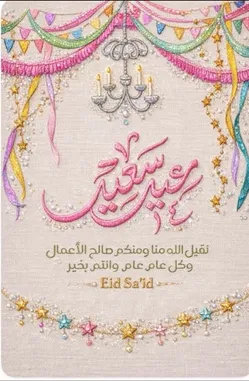 عيد سعيد
نقيل الله منا ومنكم صالح الأعمال
وكل عام عام وانتم بخير
Eid Sa'id